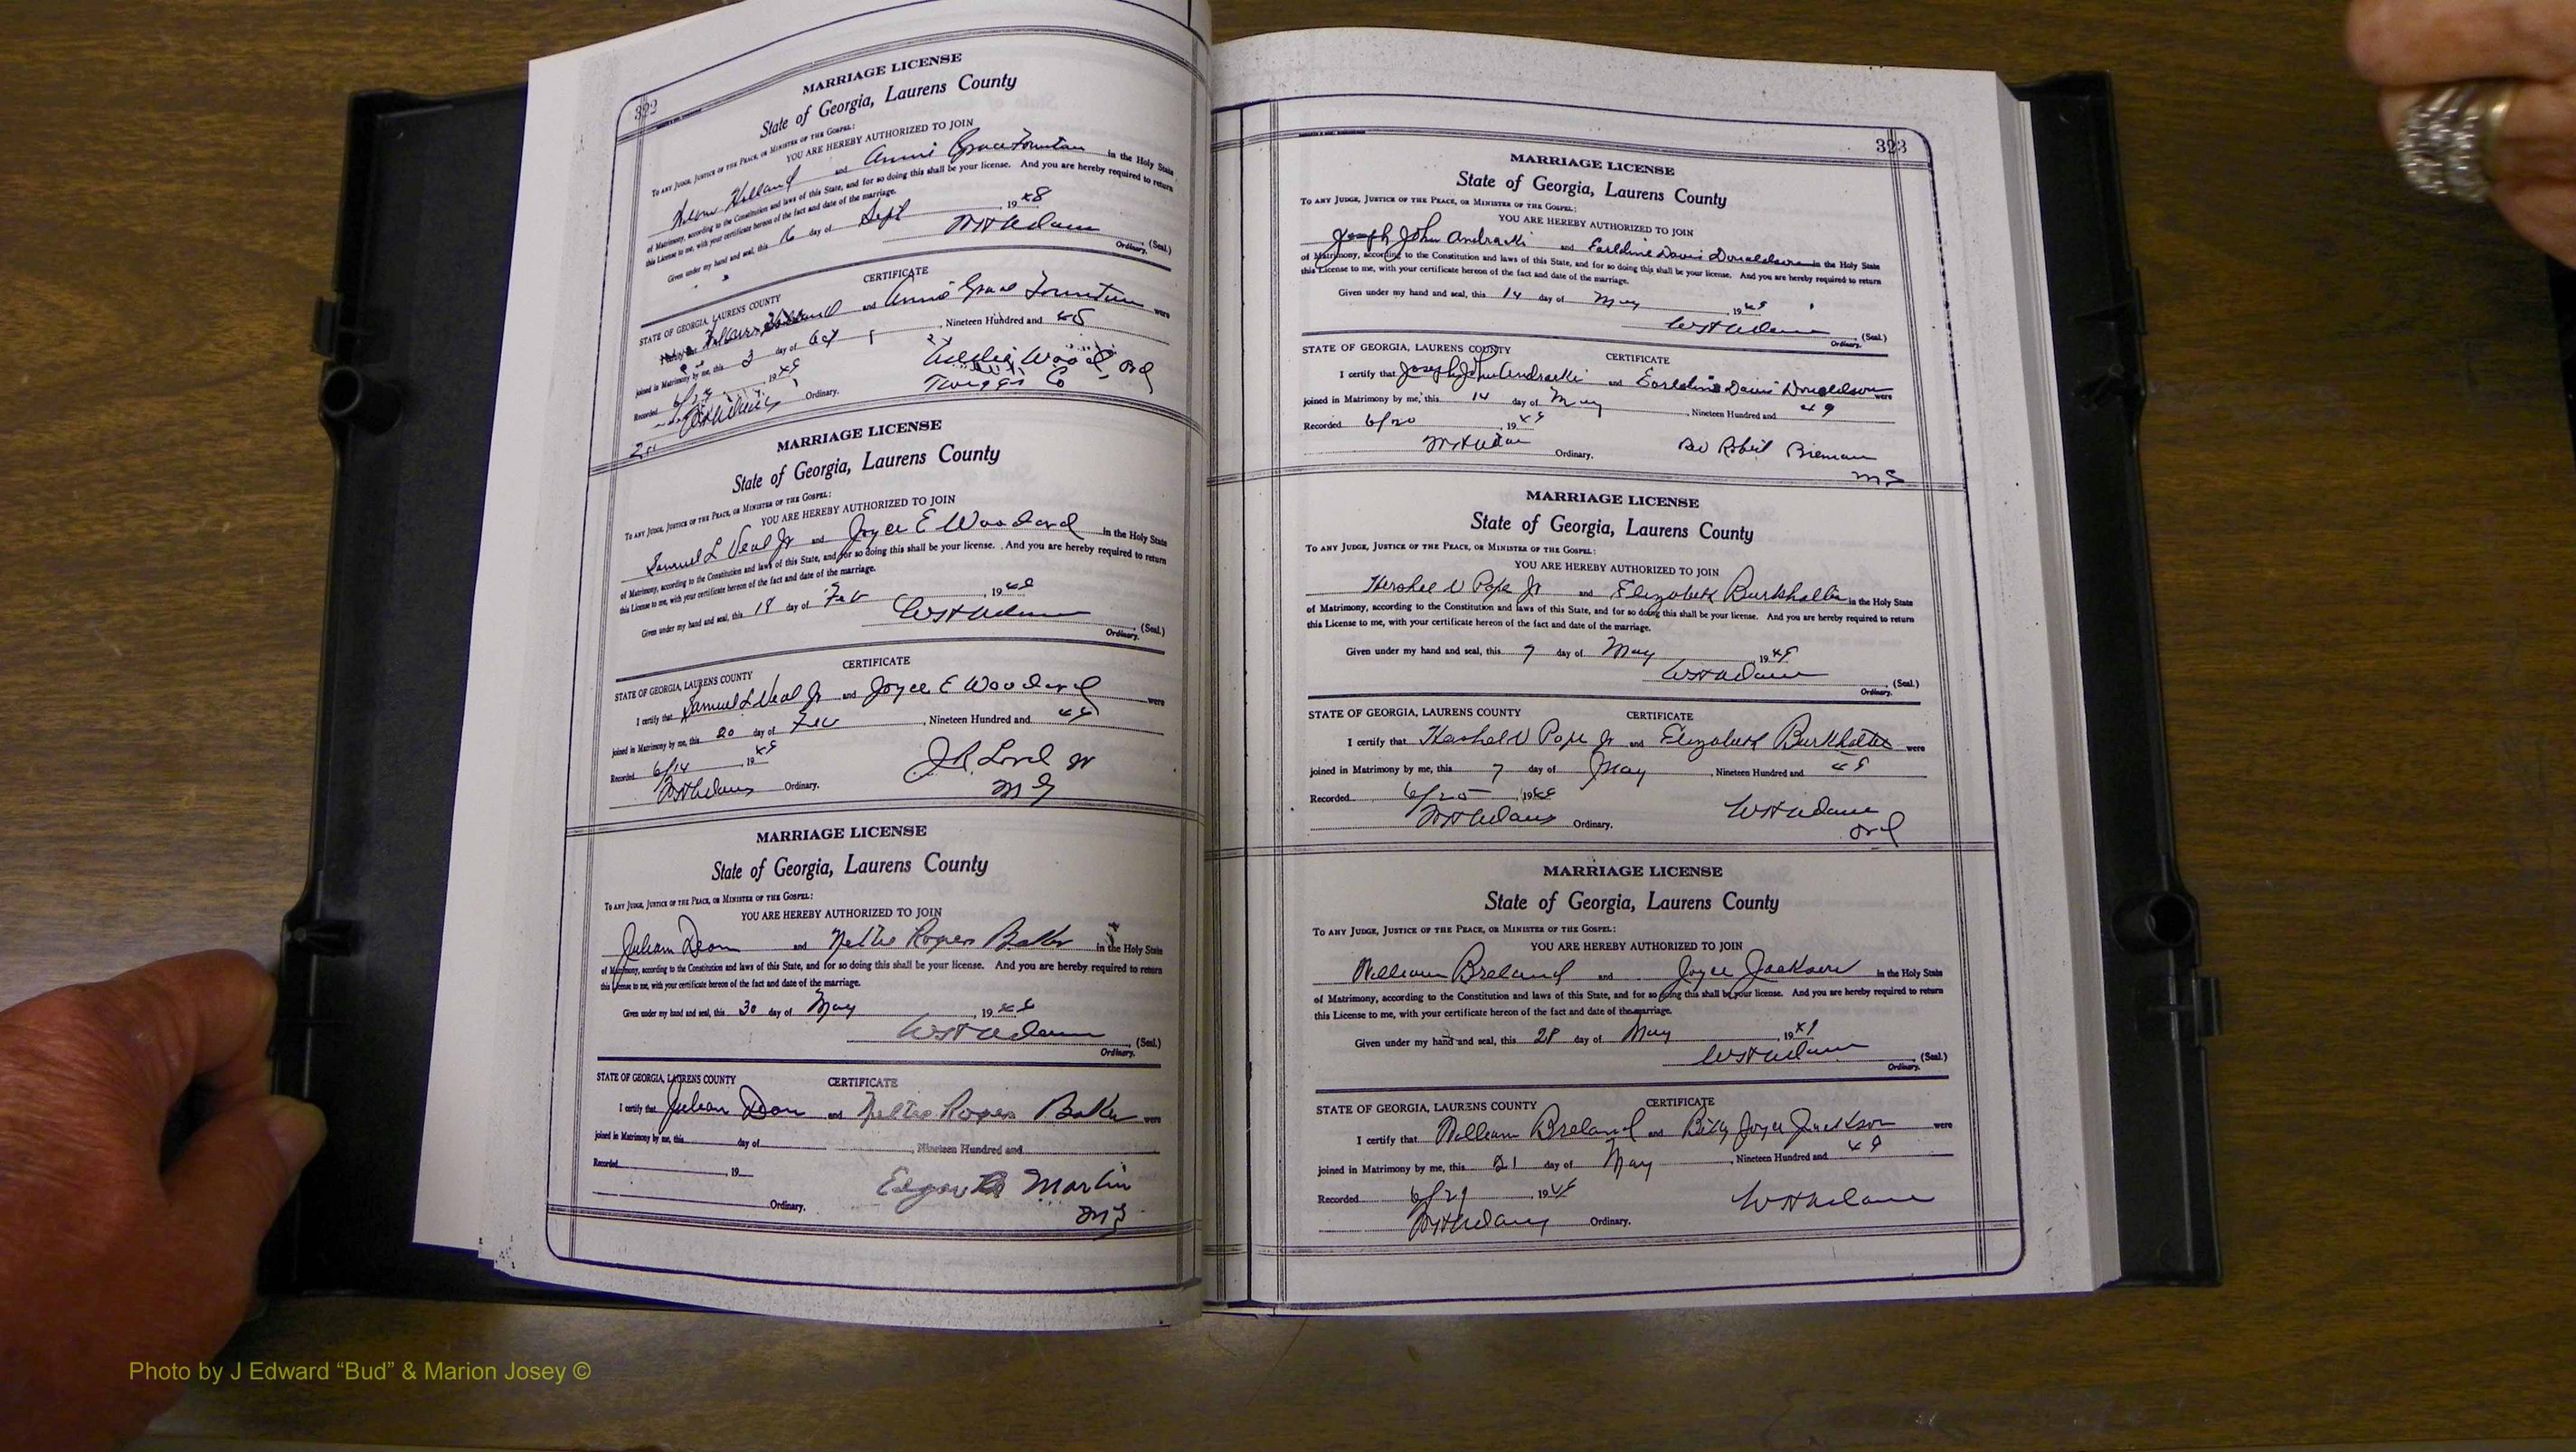 322
MARRIAGE LICENSE
State of Georgia, Laurens County
To any Judge, Justice of the Peace, or Minister of the Gospel:
YOU ARE HEREBY AUTHORIZED TO JOIN
Holland and Annie Grace Fountain in the Holy State
of Matrimony, according to the Constitution and laws of this State, and for so doing this shall be your license. And you are hereby required to return
this License to me, with your certificate hereon of the fact and date of the marriage.
Given under my hand and seal, this 16 day of Sept, 1948
W H Adams (Seal.)
Ordinary.
CERTIFICATE
STATE OF GEORGIA, LAURENS COUNTY
Holland and Annie Grace Fountain were
joined in Matrimony by me, this 3 day of Oct, Nineteen Hundred and 48
Recorded 19 49
W H Adams Ordinary.
Wood Ord
Twiggs Co
MARRIAGE LICENSE
State of Georgia, Laurens County
To any Judge, Justice of the Peace, or Minister of the Gospel:
YOU ARE HEREBY AUTHORIZED TO JOIN
Samuel L Veal Jr and Joyce E Woodard in the Holy State
of Matrimony, according to the Constitution and laws of this State, and for so doing this shall be your license. And you are hereby required to return
this License to me, with your certificate hereon of the fact and date of the marriage.
Given under my hand and seal, this 18 day of Feb, 1949
W H Adams (Seal.)
Ordinary.
CERTIFICATE
STATE OF GEORGIA, LAURENS COUNTY
I certify that Samuel L Veal Jr and Joyce E Woodard were
joined in Matrimony by me, this 20 day of Feb, Nineteen Hundred and 49
Recorded 6/14, 1949
W H Adams Ordinary.
J. R. Lord Jr
M G
MARRIAGE LICENSE
State of Georgia, Laurens County
To any Judge, Justice of the Peace, or Minister of the Gospel:
YOU ARE HEREBY AUTHORIZED TO JOIN
Julian Dean and Nettie Roper Baker in the Holy State
of Matrimony, according to the Constitution and laws of this State, and for so doing this shall be your license. And you are hereby required to return
this License to me, with your certificate hereon of the fact and date of the marriage.
Given under my hand and seal, this 30 day of May, 1949
W H Adams (Seal.)
Ordinary.
STATE OF GEORGIA, LAURENS COUNTY CERTIFICATE
I certify that Julian Dean and Nettie Roper Baker were
joined in Matrimony by me, this day of , Nineteen Hundred and
Recorded , 19
Ordinary.
Edgar Martin
M G
323
MARRIAGE LICENSE
State of Georgia, Laurens County
To any Judge, Justice of the Peace, or Minister of the Gospel:
YOU ARE HEREBY AUTHORIZED TO JOIN
Joseph John Andracki and Earldine Davis Donaldson in the Holy State
of Matrimony, according to the Constitution and laws of this State, and for so doing this shall be your license. And you are hereby required to return
this License to me, with your certificate hereon of the fact and date of the marriage.
Given under my hand and seal, this 14 day of May, 1949
W H Adams (Seal)
Ordinary.
STATE OF GEORGIA, LAURENS COUNTY CERTIFICATE
I certify that Joseph John Andracki and Earldine Davis Donaldson were
joined in Matrimony by me, this 14 day of May, Nineteen Hundred and 49
Recorded 6/20 1949
W H Adams Ordinary.
Rev Robert Brennan
M G
MARRIAGE LICENSE
State of Georgia, Laurens County
To any Judge, Justice of the Peace, or Minister of the Gospel:
YOU ARE HEREBY AUTHORIZED TO JOIN
Hershel V Pope Jr and Elizabeth Burkhalter in the Holy State
of Matrimony, according to the Constitution and laws of this State, and for so doing this shall be your license. And you are hereby required to return
this License to me, with your certificate hereon of the fact and date of the marriage.
Given under my hand and seal, this 7 day of May, 1949
W H Adams (Seal.)
Ordinary.
STATE OF GEORGIA, LAURENS COUNTY CERTIFICATE
I certify that Hershel V Pope Jr and Elizabeth Burkhalter were
joined in Matrimony by me, this 7 day of May, Nineteen Hundred and 49
Recorded 6/25 1949
W H Adams Ordinary.
W H Adams
Ord
MARRIAGE LICENSE
State of Georgia, Laurens County
To any Judge, Justice of the Peace, or Minister of the Gospel:
YOU ARE HEREBY AUTHORIZED TO JOIN
William Breland and Joyce Jackson in the Holy State
of Matrimony, according to the Constitution and laws of this State, and for so doing this shall be your license. And you are hereby required to return
this License to me, with your certificate hereon of the fact and date of the marriage.
Given under my hand and seal, this 21 day of May, 1949
W H Adams (Seal)
Ordinary.
STATE OF GEORGIA, LAURENS COUNTY CERTIFICATE
I certify that William Breland and Billy Joyce Jackson were
joined in Matrimony by me, this 21 day of May, Nineteen Hundred and 49
Recorded 6/29, 1949
W H Adams Ordinary.
W H Adams
Photo by J Edward “Bud” & Marion Josey ©